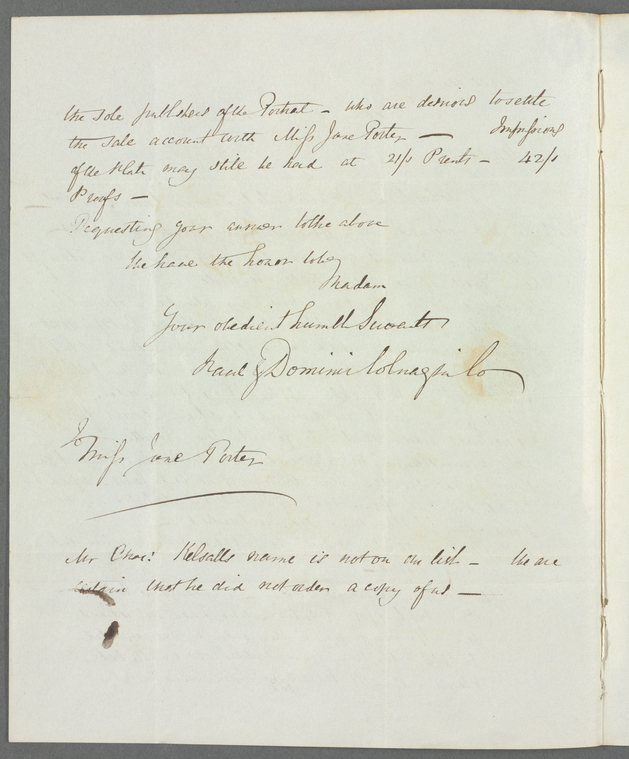 the sole publishers of the Portrait – who are desirous to settle
the sale account with Miss Jane Porter — Impressions
of the Plate may still be had at 21/s Prints – 42/s
Proofs —
Requesting your answer to the above
We have the honor to be
Madam
Your obedient humble Servants
Paul & Dominic Colnaghi Co
Miss Jane Porter
Mr Chas: Kelsalls name is not on our list – We are
certain that he did not order a copy of us —